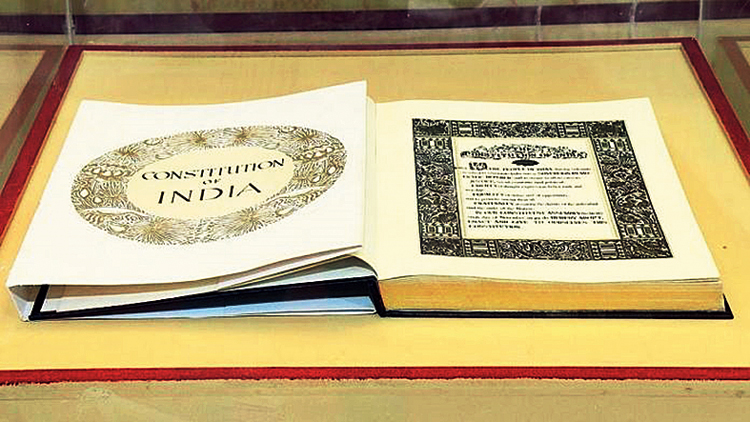 CONSTITUTION
OF
INDIA
CONSTITUTION OF INDIA
WE THE PEOPLE OF INDIA
SOVEREIGN
and to secure to all
JUSTICE, social, economic and political
of thought, expression, belief, faith and
EQUALITY of status and of opportunity
and to promote among them all
FRATERNITY assuring the dignity of the individual
and the unity of the Nation
IN OUR CONSTITUENT ASSEMBLY this
day of November do HEREBY ADOPT,
ENACT AND GIVE TO OURSELVES THIS
CONSTITUTION.